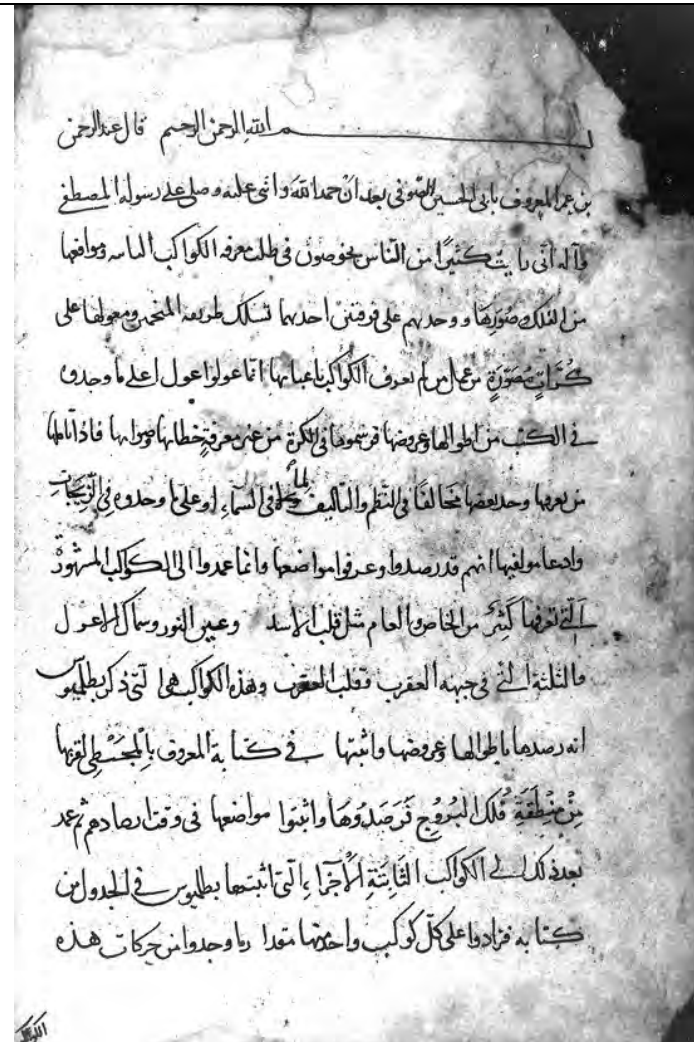 بسم الله الرحمن الرحيم قال عبد الرحمن
بن عمر المعروف بابي الحسين الصوفي بعد ان حمد الله واثنى عليه وصلى على رسوله المصطفى
وآله انى رايت كثيرًا من الناس يخوضون فى طلب معرفه الكواكب الثابته ومواقعها
من الفلك وصورها ووجدتهم على فرقتين احديهما تسلك طريقه المنجمين ومعولها على
كراتٍ مصورةٍ من عمل من لم يعرف الكواكب باعيانها انما عولوا على ما وجدوه
فى الكتب من اطوالها وعروضها فرسموها فى الكرة من غير معرفةِ خطائها وصوابها فاذا تاملها
من يعرفها وجد بعضها مخالفًا فى النظم والتاليف لما فى السماء او على ما وجدوه فى الزيجات
وادعا مولفيها انهم قد رصدوا وعرفوا مواضعها وانما عمدوا الى الكواكب المشهورة
التى تعرفها كثير من الخاص والعام مثل قلب الاسد وعين الثور وسماك الاعزل
والثلثة التى فى جبهه العقرب وقلب العقرب وهذه الكواكب هى التى ذكر بطلميوس
انه رصدها باطوالها وعروضها واثبتها فى كتابه المعروف بالمجسطى لقربها
من منطقة فلك البروج فرصدوها واثبتوا مواضعها فى وقت ارصادهم ثم عمد
بعد ذلك الى الكواكب الثابتة الاخراء التى اثبتها بطلميوس فى الجدول من
كتابه فزادوا على كل كوكب واحد منها مقدار ما وجدوا من حركات هذه
الكواكب